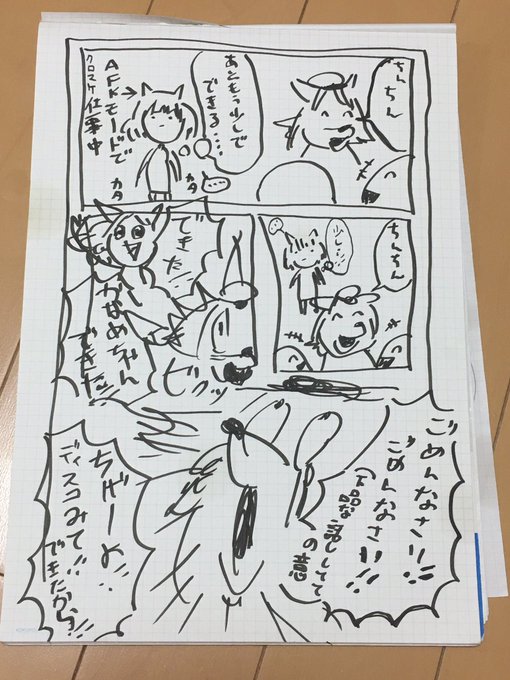 ちんちん
あともう少しで
できる….
AFKモードで
クロスケ仕事中
カタ
カタ
ちんちん
少し…
できた!!
かなめちゃん
できた!!
ビクッ
ごめんなさい!!
ごめんなさい!!
(下品な話ししてて
の意
ちげーよ!!
ディスコみて!!
できたから!!